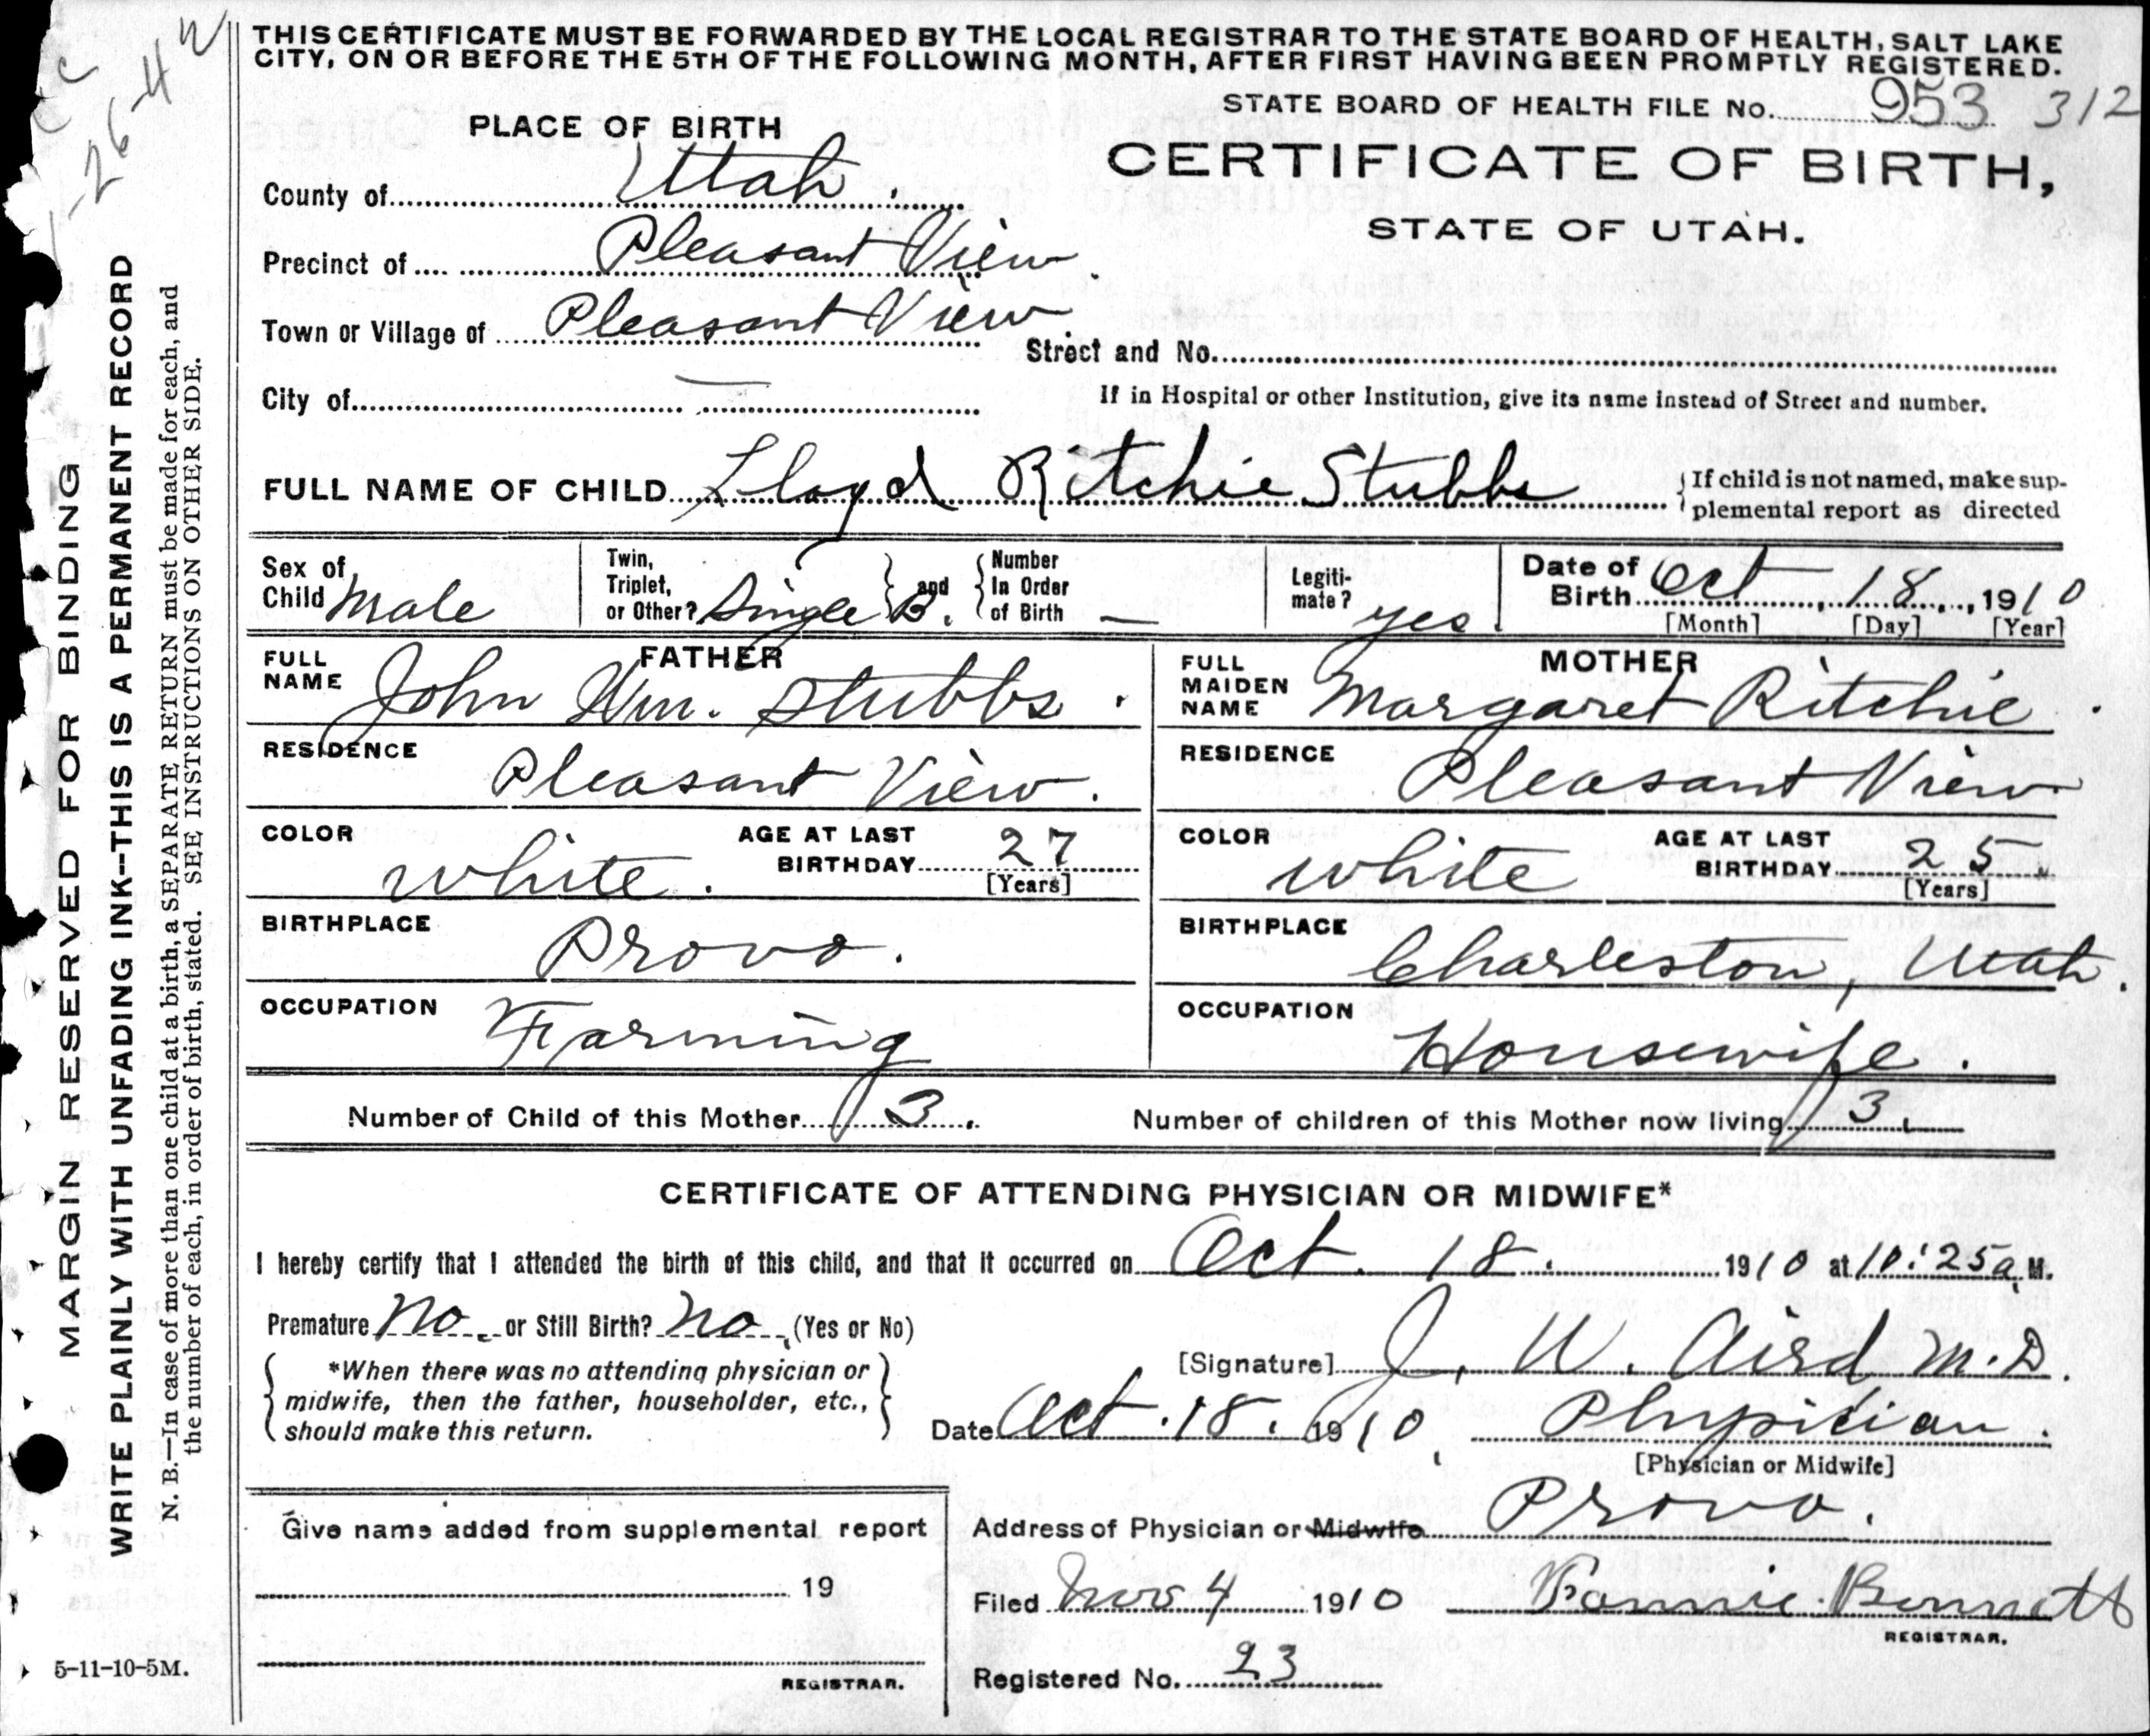 THIS CERTIFICATE MUST BE FORWARDED BY THE LOCAL REGISTRAR TO THE STATE BOARD OF HEALTH, SALT LAKE
CITY, ON OR BEFORE THE 5TH OF THE FOLLOWING MONTH, AFTER FIRST HAVING BEEN PROMPTLY REGISTERED.
STATE BOARD OF HEALTH FILE No. 953 312
PLACE OF BIRTH
CERTIFICATE OF BIRTH,
STATE OF UTAH.
County of Utah.
Precinct of Pleasant View.
Town or Village of Pleasant View.
Street and No.
City of —
If in Hospital or other Institution, give its name instead of Street and number.
FULL NAME OF CHILD Lloyd Ritchie Stubbs
If child is not named, make sup-
plemental report as directed
Sex of Child Male
Twin, Triplet, or Other? Single B. and Number In Order of Birth —
Legiti-mate? yes.
Date of Birth Oct 18, 1910
[Month] [Day] [Year]
FATHER
FULL NAME John Wm. Stubbs.
RESIDENCE Pleasant View.
COLOR white. AGE AT LAST BIRTHDAY 27 [Years]
BIRTHPLACE Provo.
OCCUPATION Farming
MOTHER
FULL MAIDEN NAME Margaret Ritchie.
RESIDENCE Pleasant View
COLOR white AGE AT LAST BIRTHDAY 25 [Years]
BIRTHPLACE Charleston, Utah.
OCCUPATION Housewife.
Number of Child of this Mother 3. Number of children of this Mother now living 3.
CERTIFICATE OF ATTENDING PHYSICIAN OR MIDWIFE*
I hereby certify that I attended the birth of this child, and that it occurred on Oct. 18. 1910 at 10:25 a M.
Premature No. or Still Birth? No. (Yes or No)
*When there was no attending physician or
midwife, then the father, householder, etc.,
should make this return.
[Signature] J. W. Aird M.D.
Date Oct. 18. 1910, Physician.
[Physician or Midwife]
Address of Physician or Midwife Provo.
Give name added from supplemental report
19
REGISTRAR.
Filed Nov 4 1910 Fannie Bennett
REGISTRAR.
Registered No. 23
MARGIN RESERVED FOR BINDING
WRITE PLAINLY WITH UNFADING INK--THIS IS A PERMANENT RECORD
N. B.—In case of more than one child at a birth, a SEPARATE RETURN must be made for each, and
the number of each, in order of birth, stated. SEE INSTRUCTIONS ON OTHER SIDE.
5-11-10-5M.